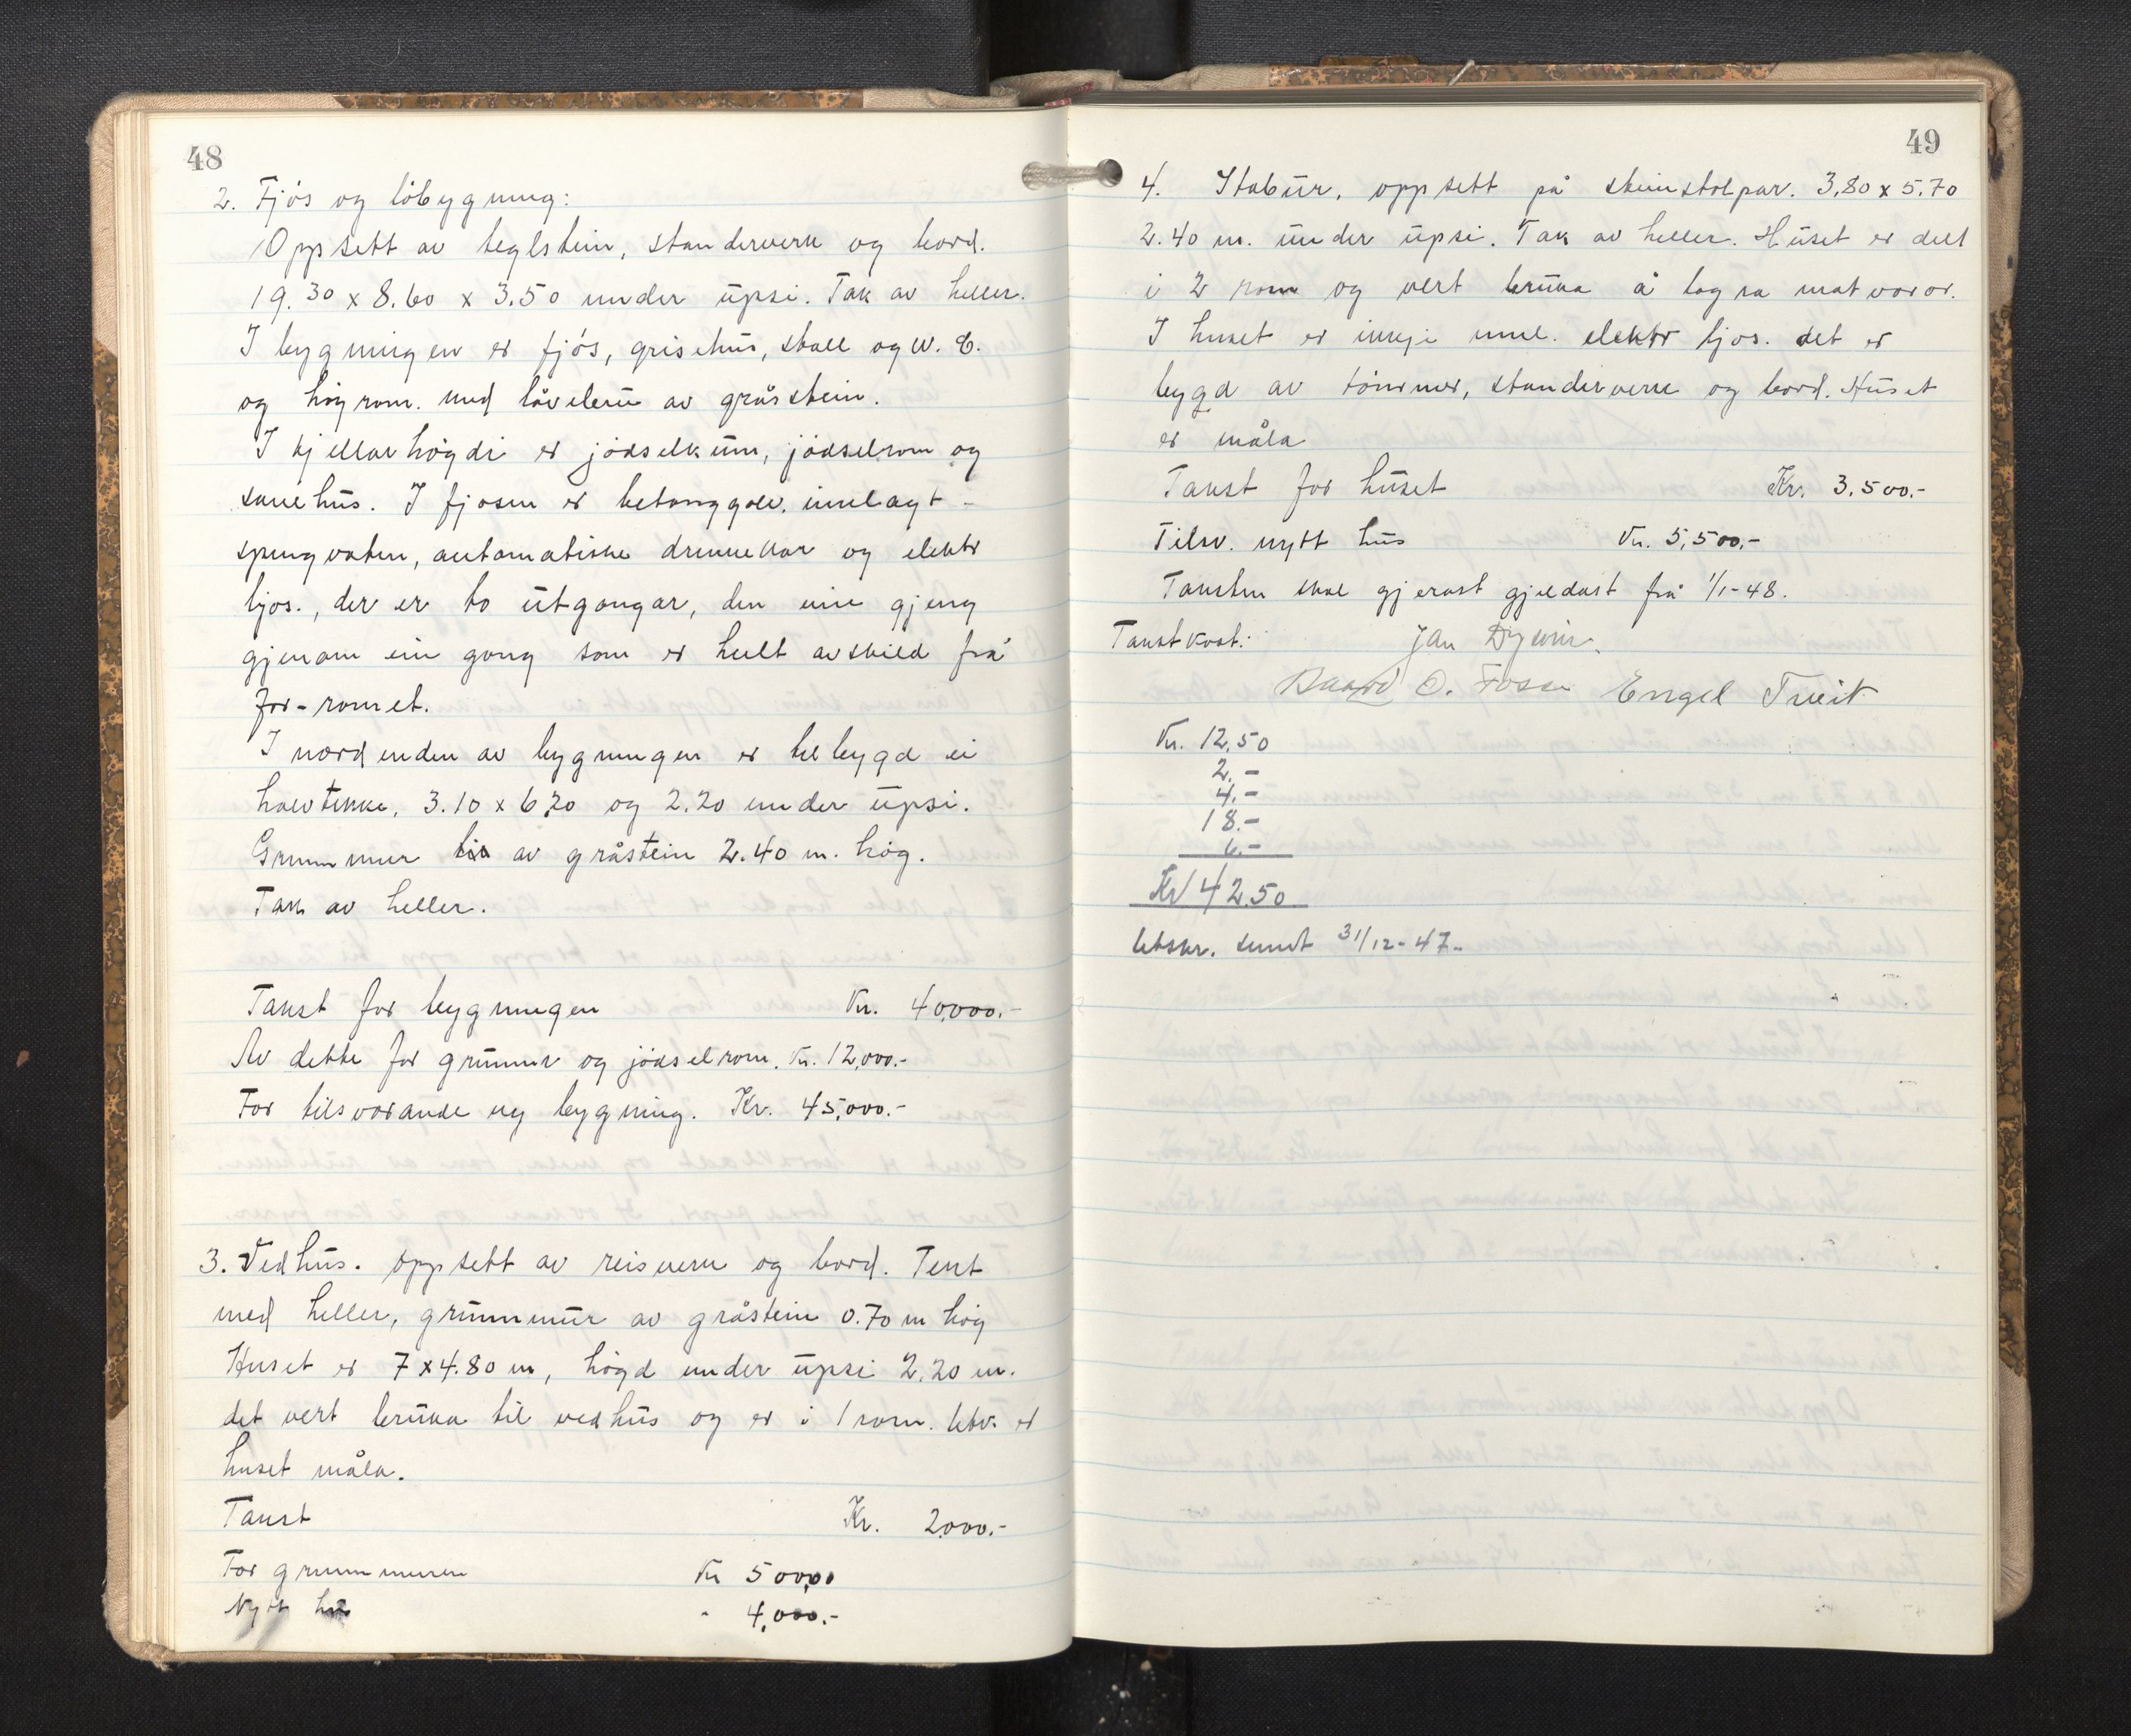 48
2. Fjós og löbygning:
Oppsett av teglstein, standerverk og bord.
19.30 x 8.60 x 3.50 under upsi. Tak av heller.
I bygningen er fjós, grisehus, stall og W.C.
og höyrom. med låvebru av gråstein.
I kjellarhögdi er jödselkum, jödselrom og
surhus. I fjosen er betonggolv, innlagt
spingvatn, automatiske drikkekar og elektr
ljos., der er to utgangar, den eine gjeng
gjenom ein gang som er heilt avskild frå
for-romet.
I nordenden av bygningen er tilbygd ei
halvtekke, 3.10 x 6.20 og 2.20 under upsi.
Grunnmur av gråstein 2.40 m. hög.
Tak av heller.
Takst for bygningen Kr. 40,000.-
Av dette for grunnmur og jödselrom. Kr. 12,000.-
For tilsvarande ny bygning. Kr. 45,000.-
3. Vedhus. oppsett av reisverk og bord. Tekt
med heller, grunnmur av gråstein 0.70 m hög
Huset er 7 x 4.80 m, högd under upsi 2.20 m.
det vert bruka til vedhus og er i 1 rom. Utv. er
huset måla.
Takst Kr. 2,000.-
For grunnmuren Kr 500,00
Nytt hus " 4,000.-
49
4. Stabur, oppsett på steinstolpar. 3,80 x 5.70
2.40 m. under upsi. Tak av heller. Huset er delt
i 2 rom og vert bruka å lagra matvaror.
I huset er inkje innl. elektr ljos. det er
bygd av tömmer, standerverk og bord. Huset
er måla
Takst for huset Kr. 3,500.-
Tilsv. nytt hus Kr. 5,500.-
Taksten skal gjerast gjeldast frå 1/1-48.
Takstkost: Jan Dyvin.
Baard O. Fosse Engel Tveit
Kr. 12,50
2.-
4.-
18.-
6.-
Kr 42.50
Utskr. sendt 31/12-47.